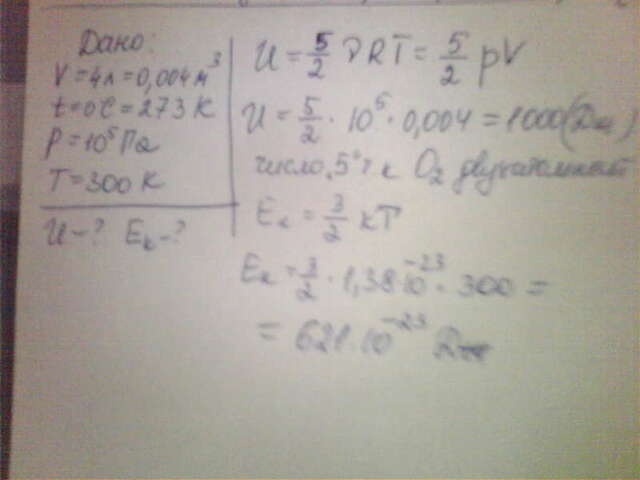 Дано:
V = 4л = 0,004 м³
t = 0C = 273 К
P = 10⁵ Па
T = 300 К
U - ? Eₖ - ?
U = 5/2 νRT = 5/2 pV
U = 5/2 · 10⁵ · 0,004 = 1000 (Дж)
число „5“ т к O₂ двухатомный
Eₖ = 3/2 kT
Eₖ = 3/2 · 1,38·10⁻²³ · 300 =
= 621·10⁻²³ Дж